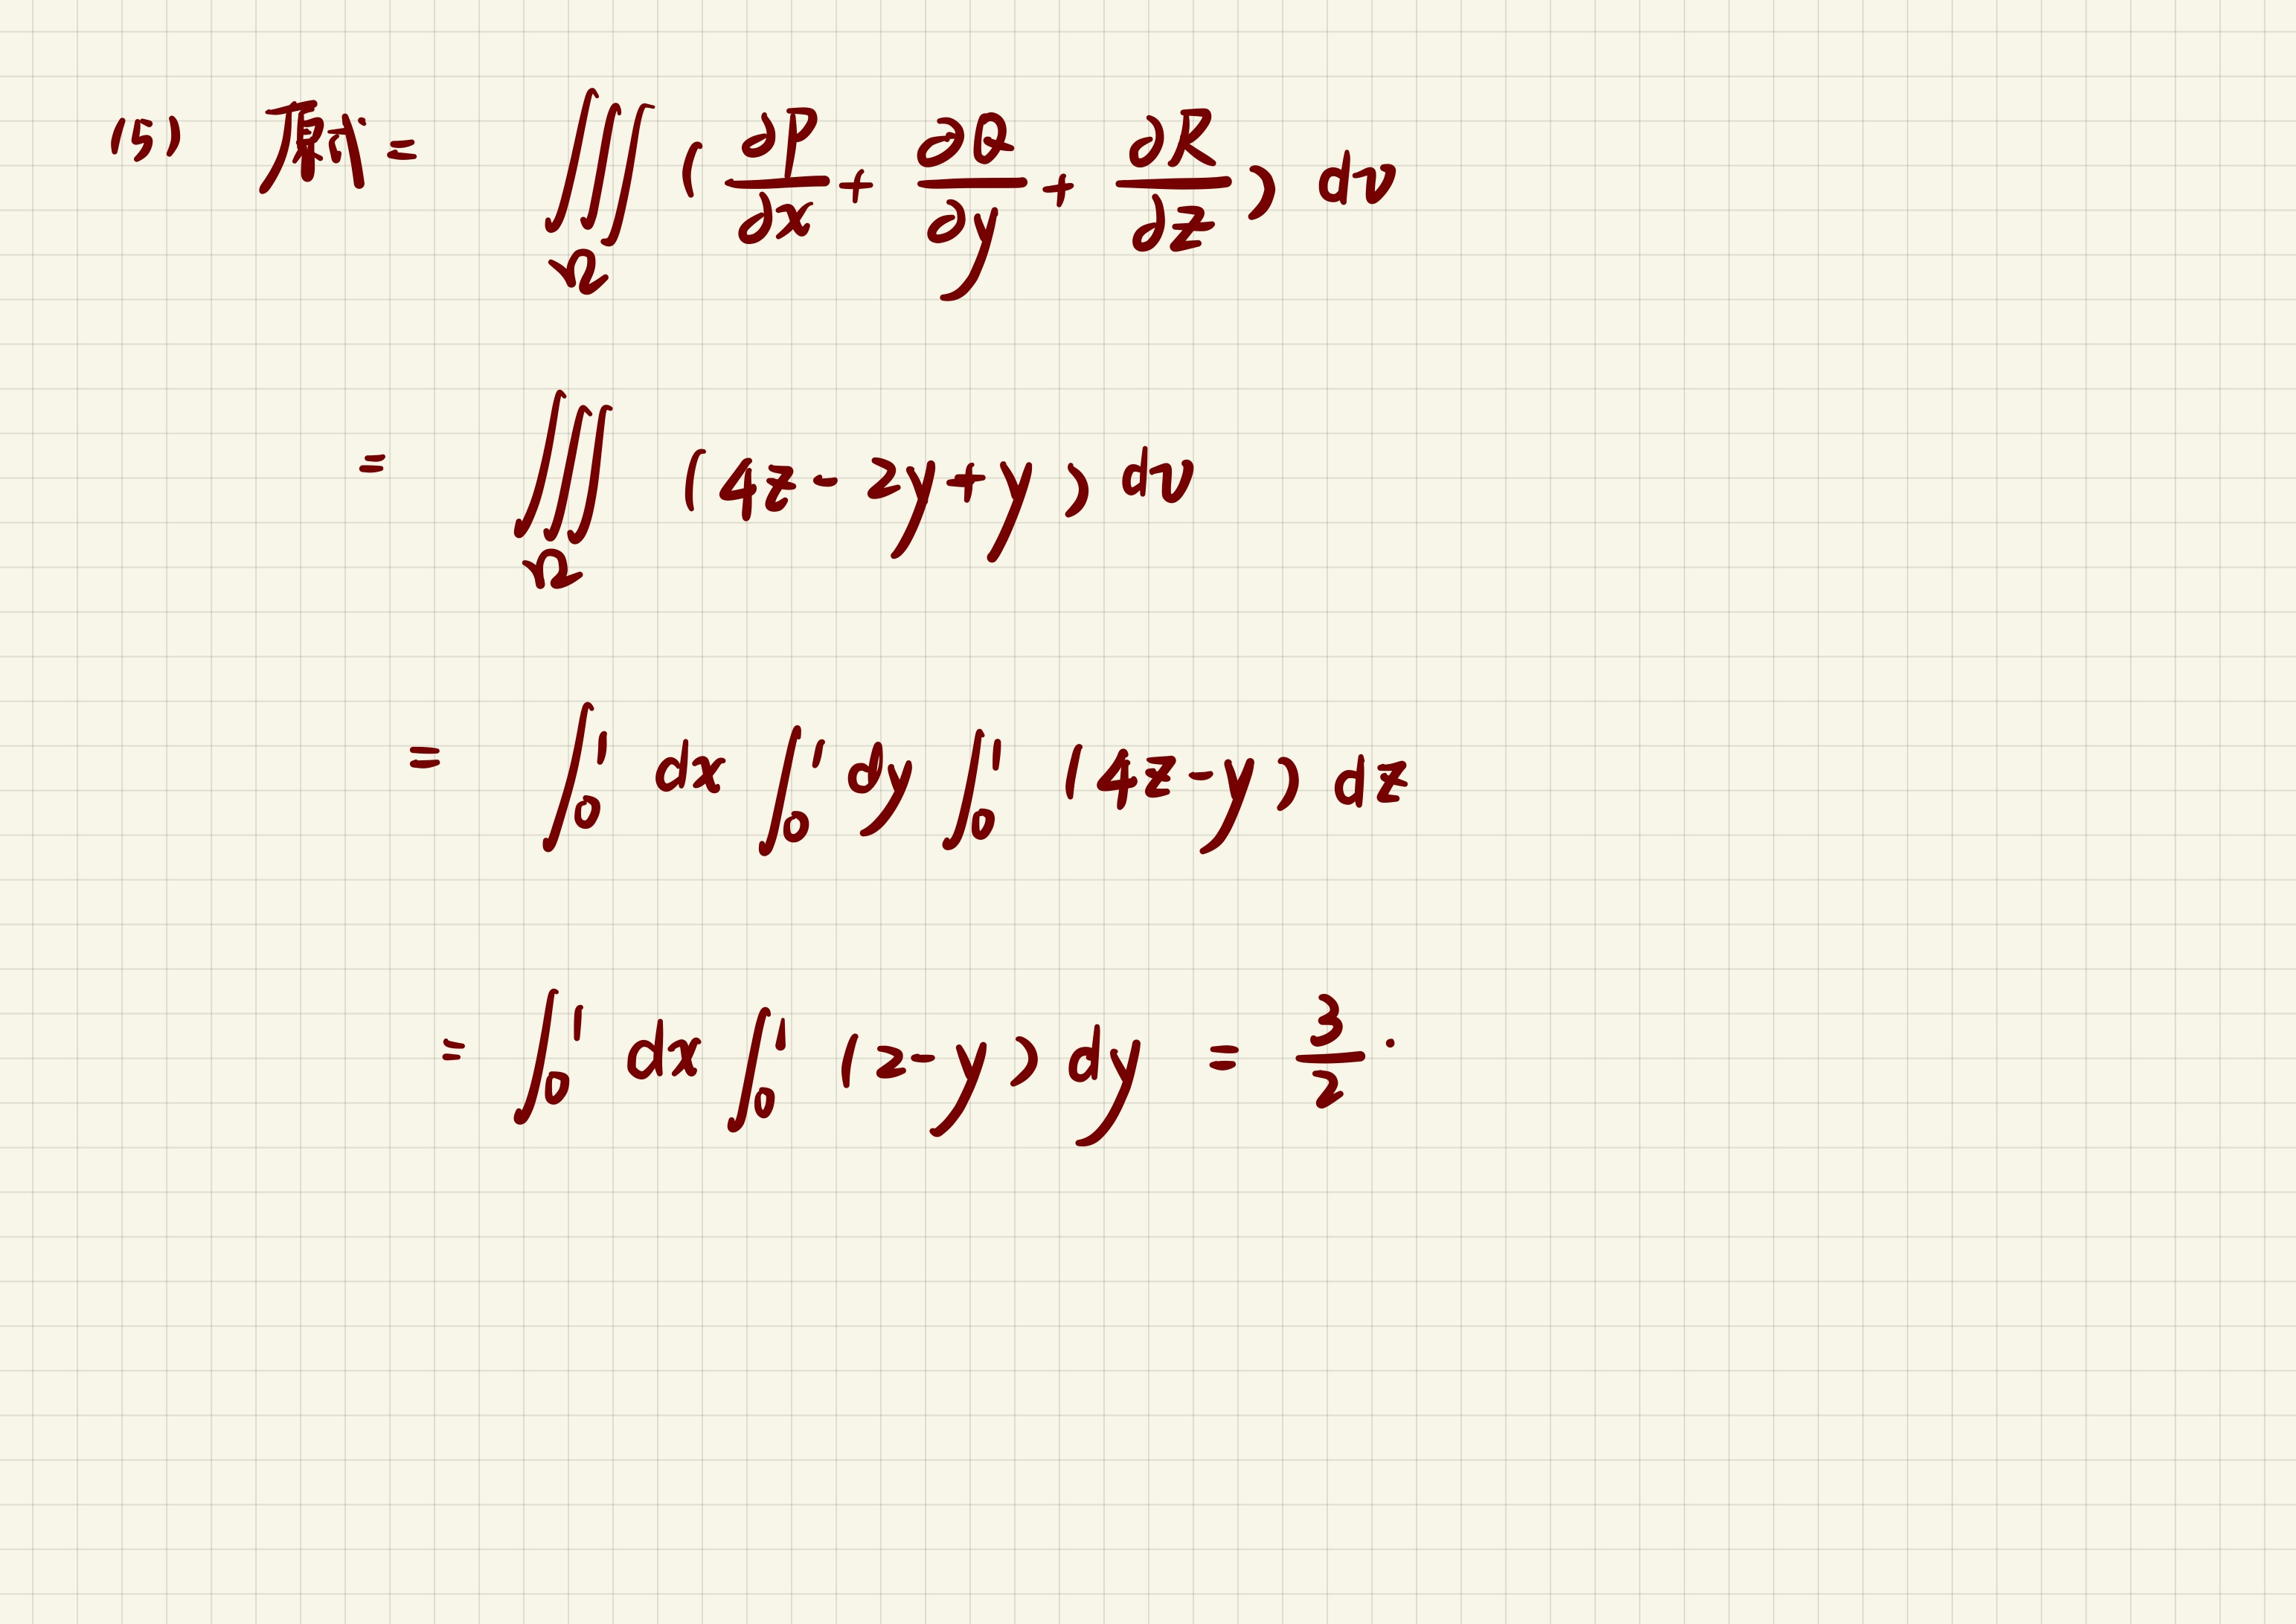 (5) 原式 = ∭_Ω ( ∂P/∂x + ∂Q/∂y + ∂R/∂z ) dv
= ∭_Ω ( 4z - 2y + y ) dv
= ∫_0^1 dx ∫_0^1 dy ∫_0^1 (4z - y) dz
= ∫_0^1 dx ∫_0^1 (2 - y) dy = 3/2 .